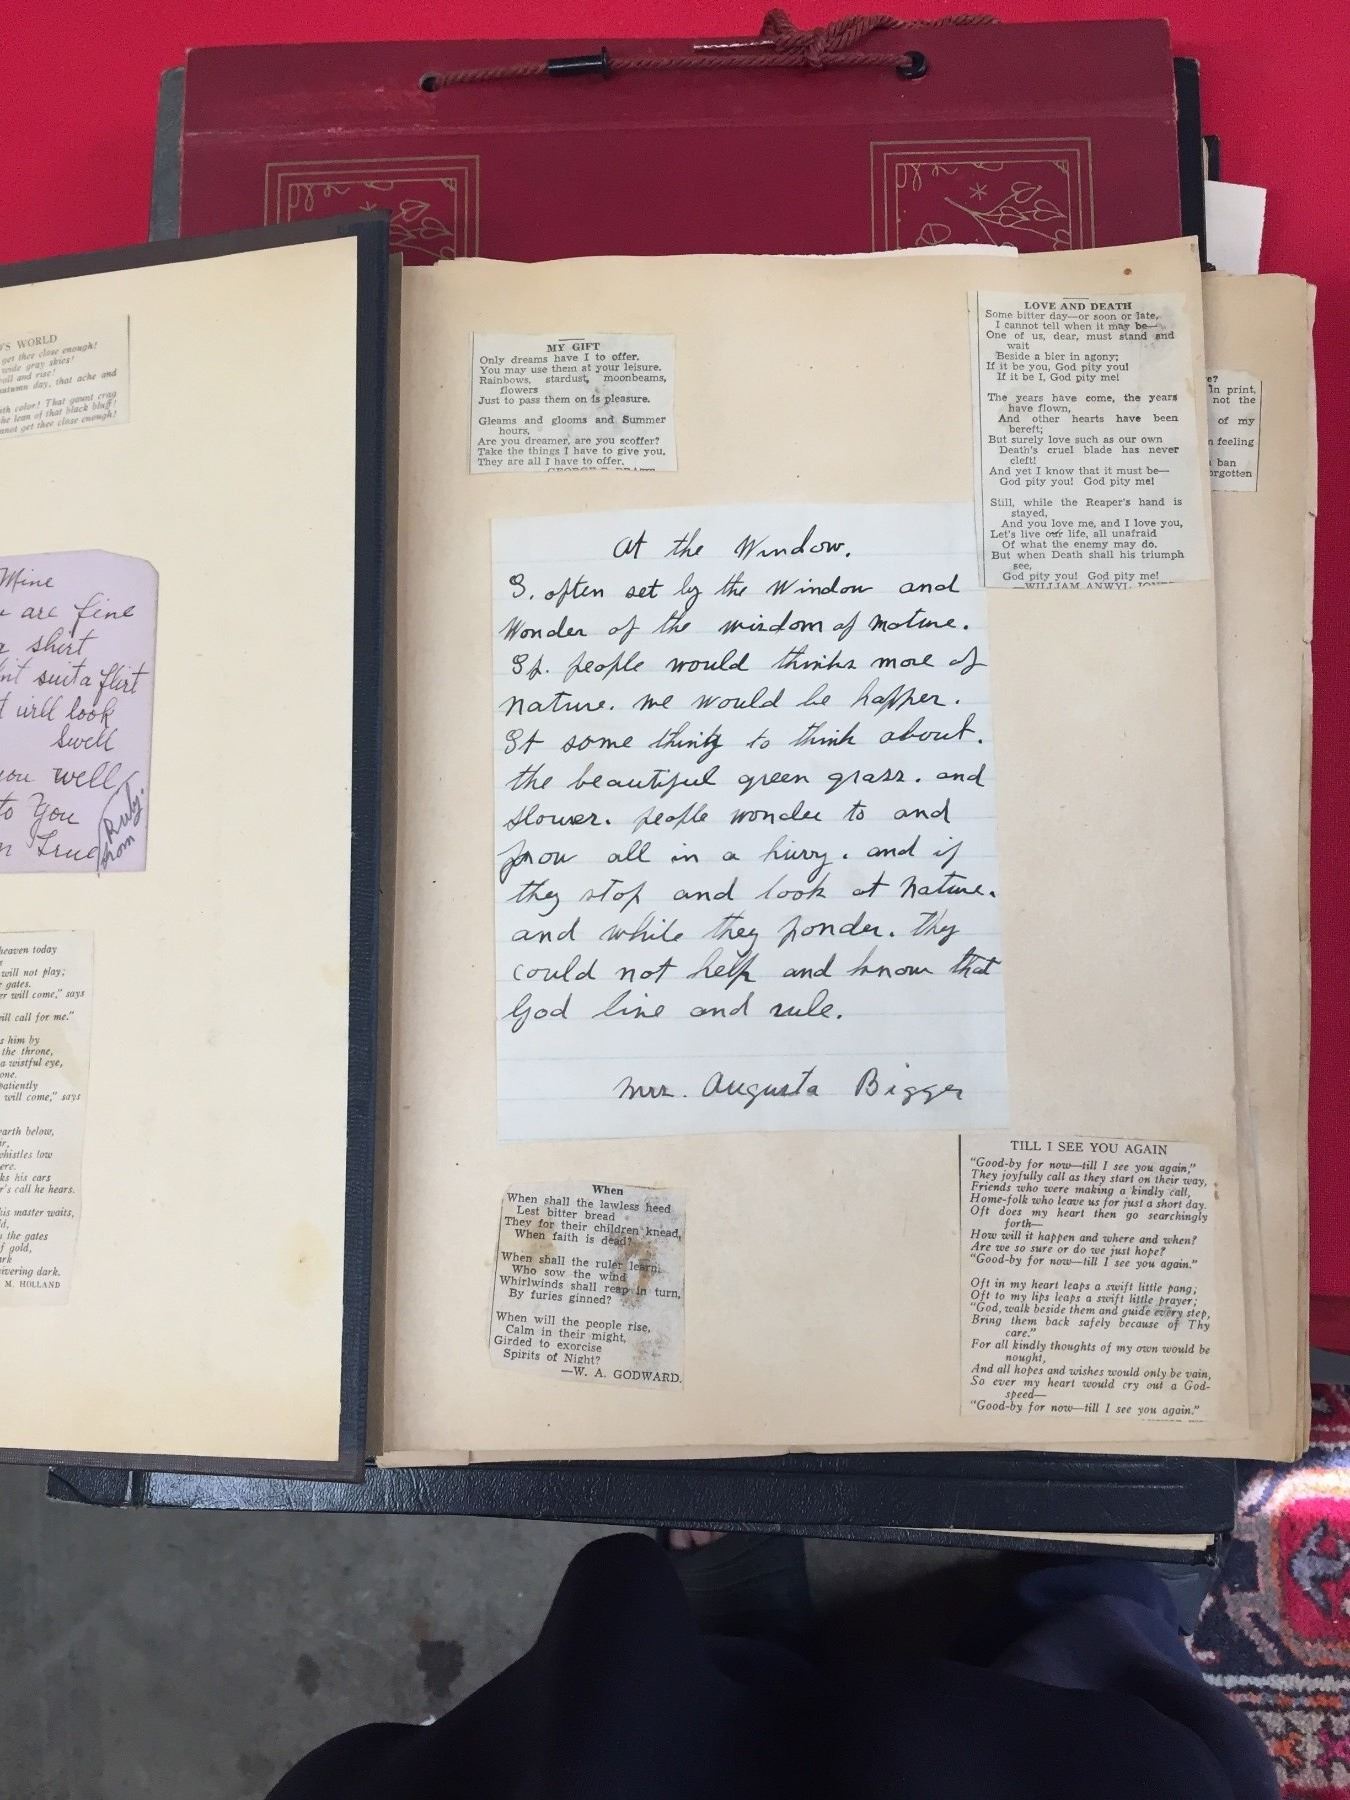 'S WORLD
get thee close enough!
wide gray skies!
roll and rise!
autumn day, that ache and
with color! That gaunt crag
the lean of that black bluff!
cannot get thee close enough!
Mine
are fine
a shirt
suit a flirt
will look
Swell
you well
to You
True
from Ruby.
heaven today
will not play;
gates.
will come," says
will call for me."
him by
the throne,
a wistful eye,
patiently
will come," says
earth below,
whistles low
his ears
call he hears.
his master waits,
the gates
of gold,
quivering dark.
M. HOLLAND
MY GIFT
Only dreams have I to offer.
You may use them at your leisure.
Rainbows, stardust, moonbeams,
flowers
Just to pass them on is pleasure.
Gleams and glooms and Summer
hours,
Are you dreamer, are you scoffer?
Take the things I have to give you,
They are all I have to offer.
LOVE AND DEATH
Some bitter day—or soon or late,
I cannot tell when it may be—
One of us, dear, must stand and
wait
Beside a bier in agony;
If it be you, God pity you!
If it be I, God pity me!
The years have come, the years
have flown,
And other hearts have been
bereft;
But surely love such as our own
Death's cruel blade has never
cleft!
And yet I know that it must be—
God pity you! God pity me!
Still, while the Reaper's hand is
stayed,
And you love me, and I love you,
Let's live our life, all unafraid
Of what the enemy may do.
But when Death shall his triumph
see,
God pity you! God pity me!
—WILLIAM ANWYL JONES
in print,
not the
of my
feeling
ban
forgotten
At the Window.
I. often set by the Window and
Wonder of the wisdom of nature.
If. people would thinks more of
nature. we would be happer.
It some thing to think about.
the beautiful green grass. and
flower. people wonder to and
frow all in a hurry. and if
they stop and look at nature.
and while they ponder. they
could not help and know that
God live and rule.
Mrs. Augusta Bigger
When
When shall the lawless heed
Lest bitter bread
They for their children knead,
When faith is dead?
When shall the ruler learn,
Who sow the wind
Whirlwinds shall reap in turn,
By furies ginned?
When will the people rise,
Calm in their might,
Girded to exorcise
Spirits of Night?
—W. A. GODWARD.
TILL I SEE YOU AGAIN
"Good-by for now—till I see you again,"
They joyfully call as they start on their way,
Friends who were making a kindly call,
Home-folk who leave us for just a short day.
Oft does my heart then go searchingly
forth—
How will it happen and where and when?
Are we so sure or do we just hope?
"Good-by for now—till I see you again."
Oft in my heart leaps a swift little pang;
Oft to my lips leaps a swift little prayer;
"God, walk beside them and guide every step,
Bring them back safely because of Thy
care."
For all kindly thoughts of my own would be
nought,
And all hopes and wishes would only be vain,
So ever my heart would cry out a God-
speed—
"Good-by for now—till I see you again."